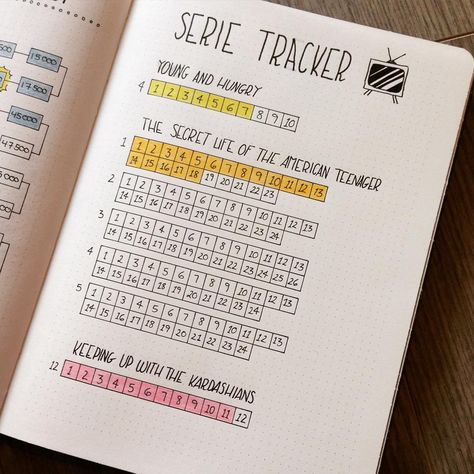 15 000
17 500
45 000
47 500
SERIE TRACKER
YOUNG AND HUNGRY
4 1 2 3 4 5 6 7 8 9 10
THE SECRET LIFE OF THE AMERICAN TEENAGER
1 1 2 3 4 5 6 7 8 9 10 11 12 13
14 15 16 17 18 19 20 21 22 23
2 1 2 3 4 5 6 7 8 9 10 11 12 13
14 15 16 17 18 19 20 21 22 23 24
3 1 2 3 4 5 6 7 8 9 10 11 12 13
14 15 16 17 18 19 20 21 22 23 24 25 26
4 1 2 3 4 5 6 7 8 9 10 11 12 13
14 15 16 17 18 19 20 21 22 23 24
5 1 2 3 4 5 6 7 8 9 10 11 12 13
14 15 16 17 18 19 20 21 22 23 24
KEEPING UP WITH THE KARDASHIANS
12 1 2 3 4 5 6 7 8 9 10 11 12